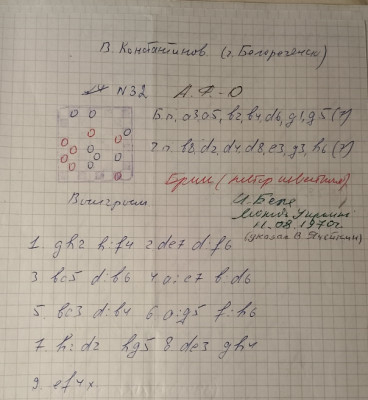 В. Константинов (г. Белореченск)
N 32 А.Ф-О
Б.п, а3,а5, b2,b4,d6, g1,g5 (7)
Ч.п. b8,d2,d4,d8,e3,g3,h6 (7)
Выигрыш
11.08.1970г
1. gh2 h:f4 2 de7 d:f6
3 bc5 d:b6 4. a:c7 b:d6
5. bc3 d:b4 6. a:g5 f:h6
7. h:d2 hg5 8 de3 gh4
9. ef4x